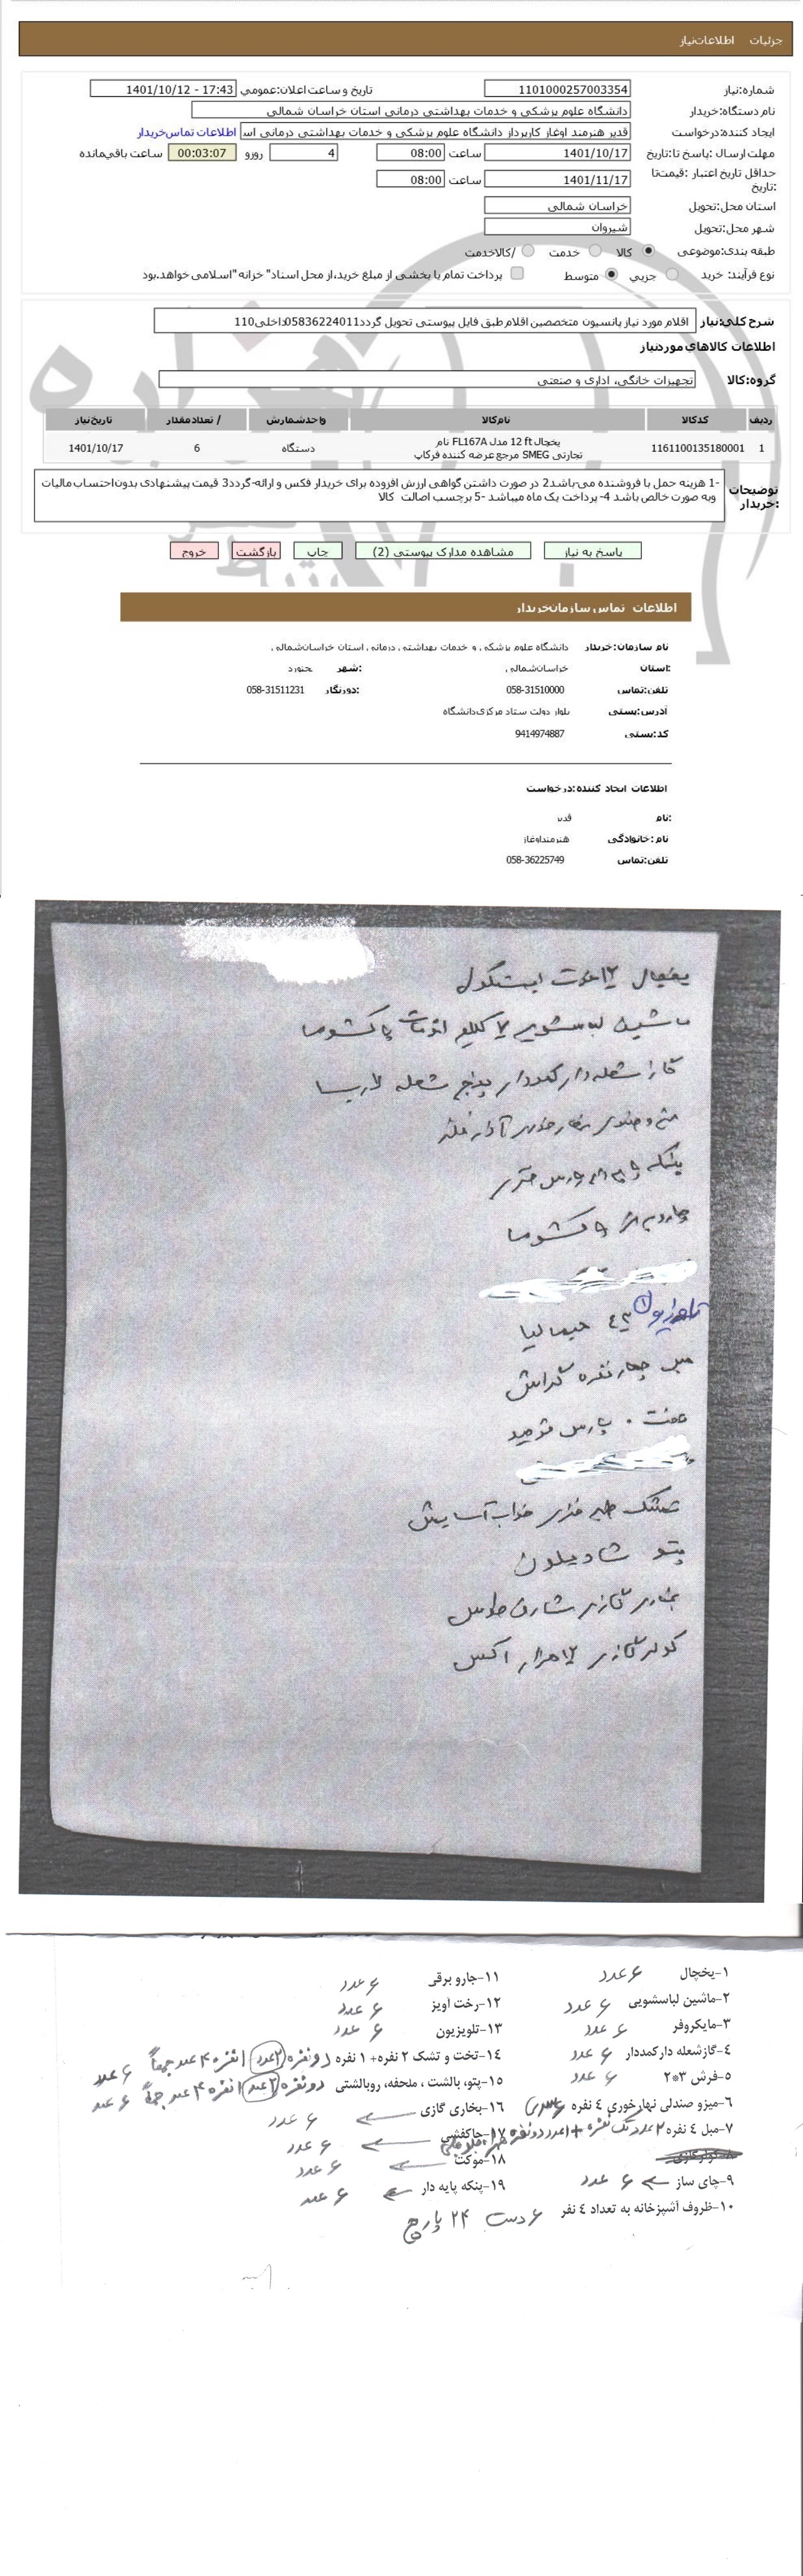 جزئیات اطلاعات نیاز
شماره نیاز: 1101000257003354 تاریخ و ساعت اعلان عمومی: 1401/10/12 - 17:43
نام دستگاه خریدار: دانشگاه علوم پزشکی و خدمات بهداشتی درمانی استان خراسان شمالی
ایجاد کننده درخواست: قدیر هنرمند اوغاز کارپرداز دانشگاه علوم پزشکی و خدمات بهداشتی درمانی اس اطلاعات تماس خریدار
مهلت ارسال پاسخ تا: تاریخ: 1401/10/17 ساعت 08:00 4 روز و 00:03:07 ساعت باقی مانده
حداقل تاریخ اعتبار قیمت: تا تاریخ: 1401/11/17 ساعت 08:00
استان محل تحویل: خراسان شمالی
شهر محل تحویل: شیروان
طبقه بندی موضوعی: کالا خدمت کالا/خدمت
نوع فرآیند خرید: جزیی متوسط پرداخت تمام یا بخشی از مبلغ خرید،از محل اسناد" خزانه "اسلامی خواهد بود.
شرح کلی نیاز: اقلام مورد نیاز پانسیون متخصصین اقلام طبق فایل پیوستی تحویل گردد05836224011داخلی110
اطلاعات کالاهای مورد نیاز
گروه کالا: تجهیزات خانگی، اداری و صنعتی
ردیف کد کالا نام کالا واحد شمارش تعداد / مقدار تاریخ نیاز
1 1161100135180001 یخچال 12 ft مدل FL167A نام تجارتی SMEG مرجع عرضه کننده فرکاپ دستگاه 6 1401/10/17
توضیحات خریدار: 1- هزینه حمل با فروشنده می-باشد2 در صورت داشتن گواهی ارزش افزوده برای خریدار فکس و ارائه-گردد3 قیمت پیشنهادی بدون احتساب مالیات
وبه صورت خالص باشد 4- پرداخت یک ماه میباشد 5- برچسب اصالت کالا
پاسخ به نیاز مشاهده مدارک پیوستی (2) چاپ بازگشت خروج
اطلاعات تماس سازمان خریدار
نام سازمان خریدار: دانشگاه علوم پزشکی و خدمات بهداشتی درمانی استان خراسان شمالی
استان: خراسان شمالی شهر: بجنورد
تلفن تماس: 058-31510000 دورنگار: 058-31511231
آدرس پستی: بلوار دولت ستاد مرکزی دانشگاه
کد پستی: 9414974887
اطلاعات ایجاد کننده درخواست:
نام: قدیر
نام خانوادگی: هنرمند اوغاز
تلفن تماس: 058-36225749
یخچال ۱۲ فوت ایستکول
ماشین لباسشویی ۷ کیلو اتومات پاکشوما
گاز شعله دار کمددار پنج شعله
میز و صندلی نهار خوری
پنکه پارس
جارو پاکشوما
۴۳ حیمالیا
مبل چهار نفره
موکت پارس
تشک طبی فنری خواب آسایش
پتو شادیلون
بخاری گازی
کولر گازی ۱۲ هزار
۱-یخچال ۶ عدد
۲-ماشین لباسشویی ۶ عدد
۳-مایکروفر ۶ عدد
۴-گازشعله دار کمددار ۶ عدد
۵-فرش ۳*۲ ۶ عدد
۶-میزو صندلی نهارخوری ٤ نفره
۷-مبل ٤ نفره ۲ عدد تک نفره + ۱ عدد دو نفره
۹-چای ساز ۶ عدد
۱۰-ظروف آشپزخانه به تعداد ٤ نفر ۶ دست ۲۴ پارچ
۱۱-جارو برقی ۶ عدد
۱۲-رخت آویز ۶ عدد
۱۳-تلویزیون ۶ عدد
۱۴-تخت و تشک ۲ نفره+ ۱ نفره دو نفره ۲ عدد ۱ نفره ۴ عدد جمعاً ۶ عدد
۱۵-پتو، بالشت ، ملحفه، روبالشتی دو نفره ۲ عدد ۱ نفره ۴ عدد جمعاً ۶ عدد
۱۶-بخاری گازی ۶ عدد
۱۷-جاکفشی ۶ عدد
۱۸-موکت ۶ عدد
۱۹-پنکه پایه دار ۶ عدد